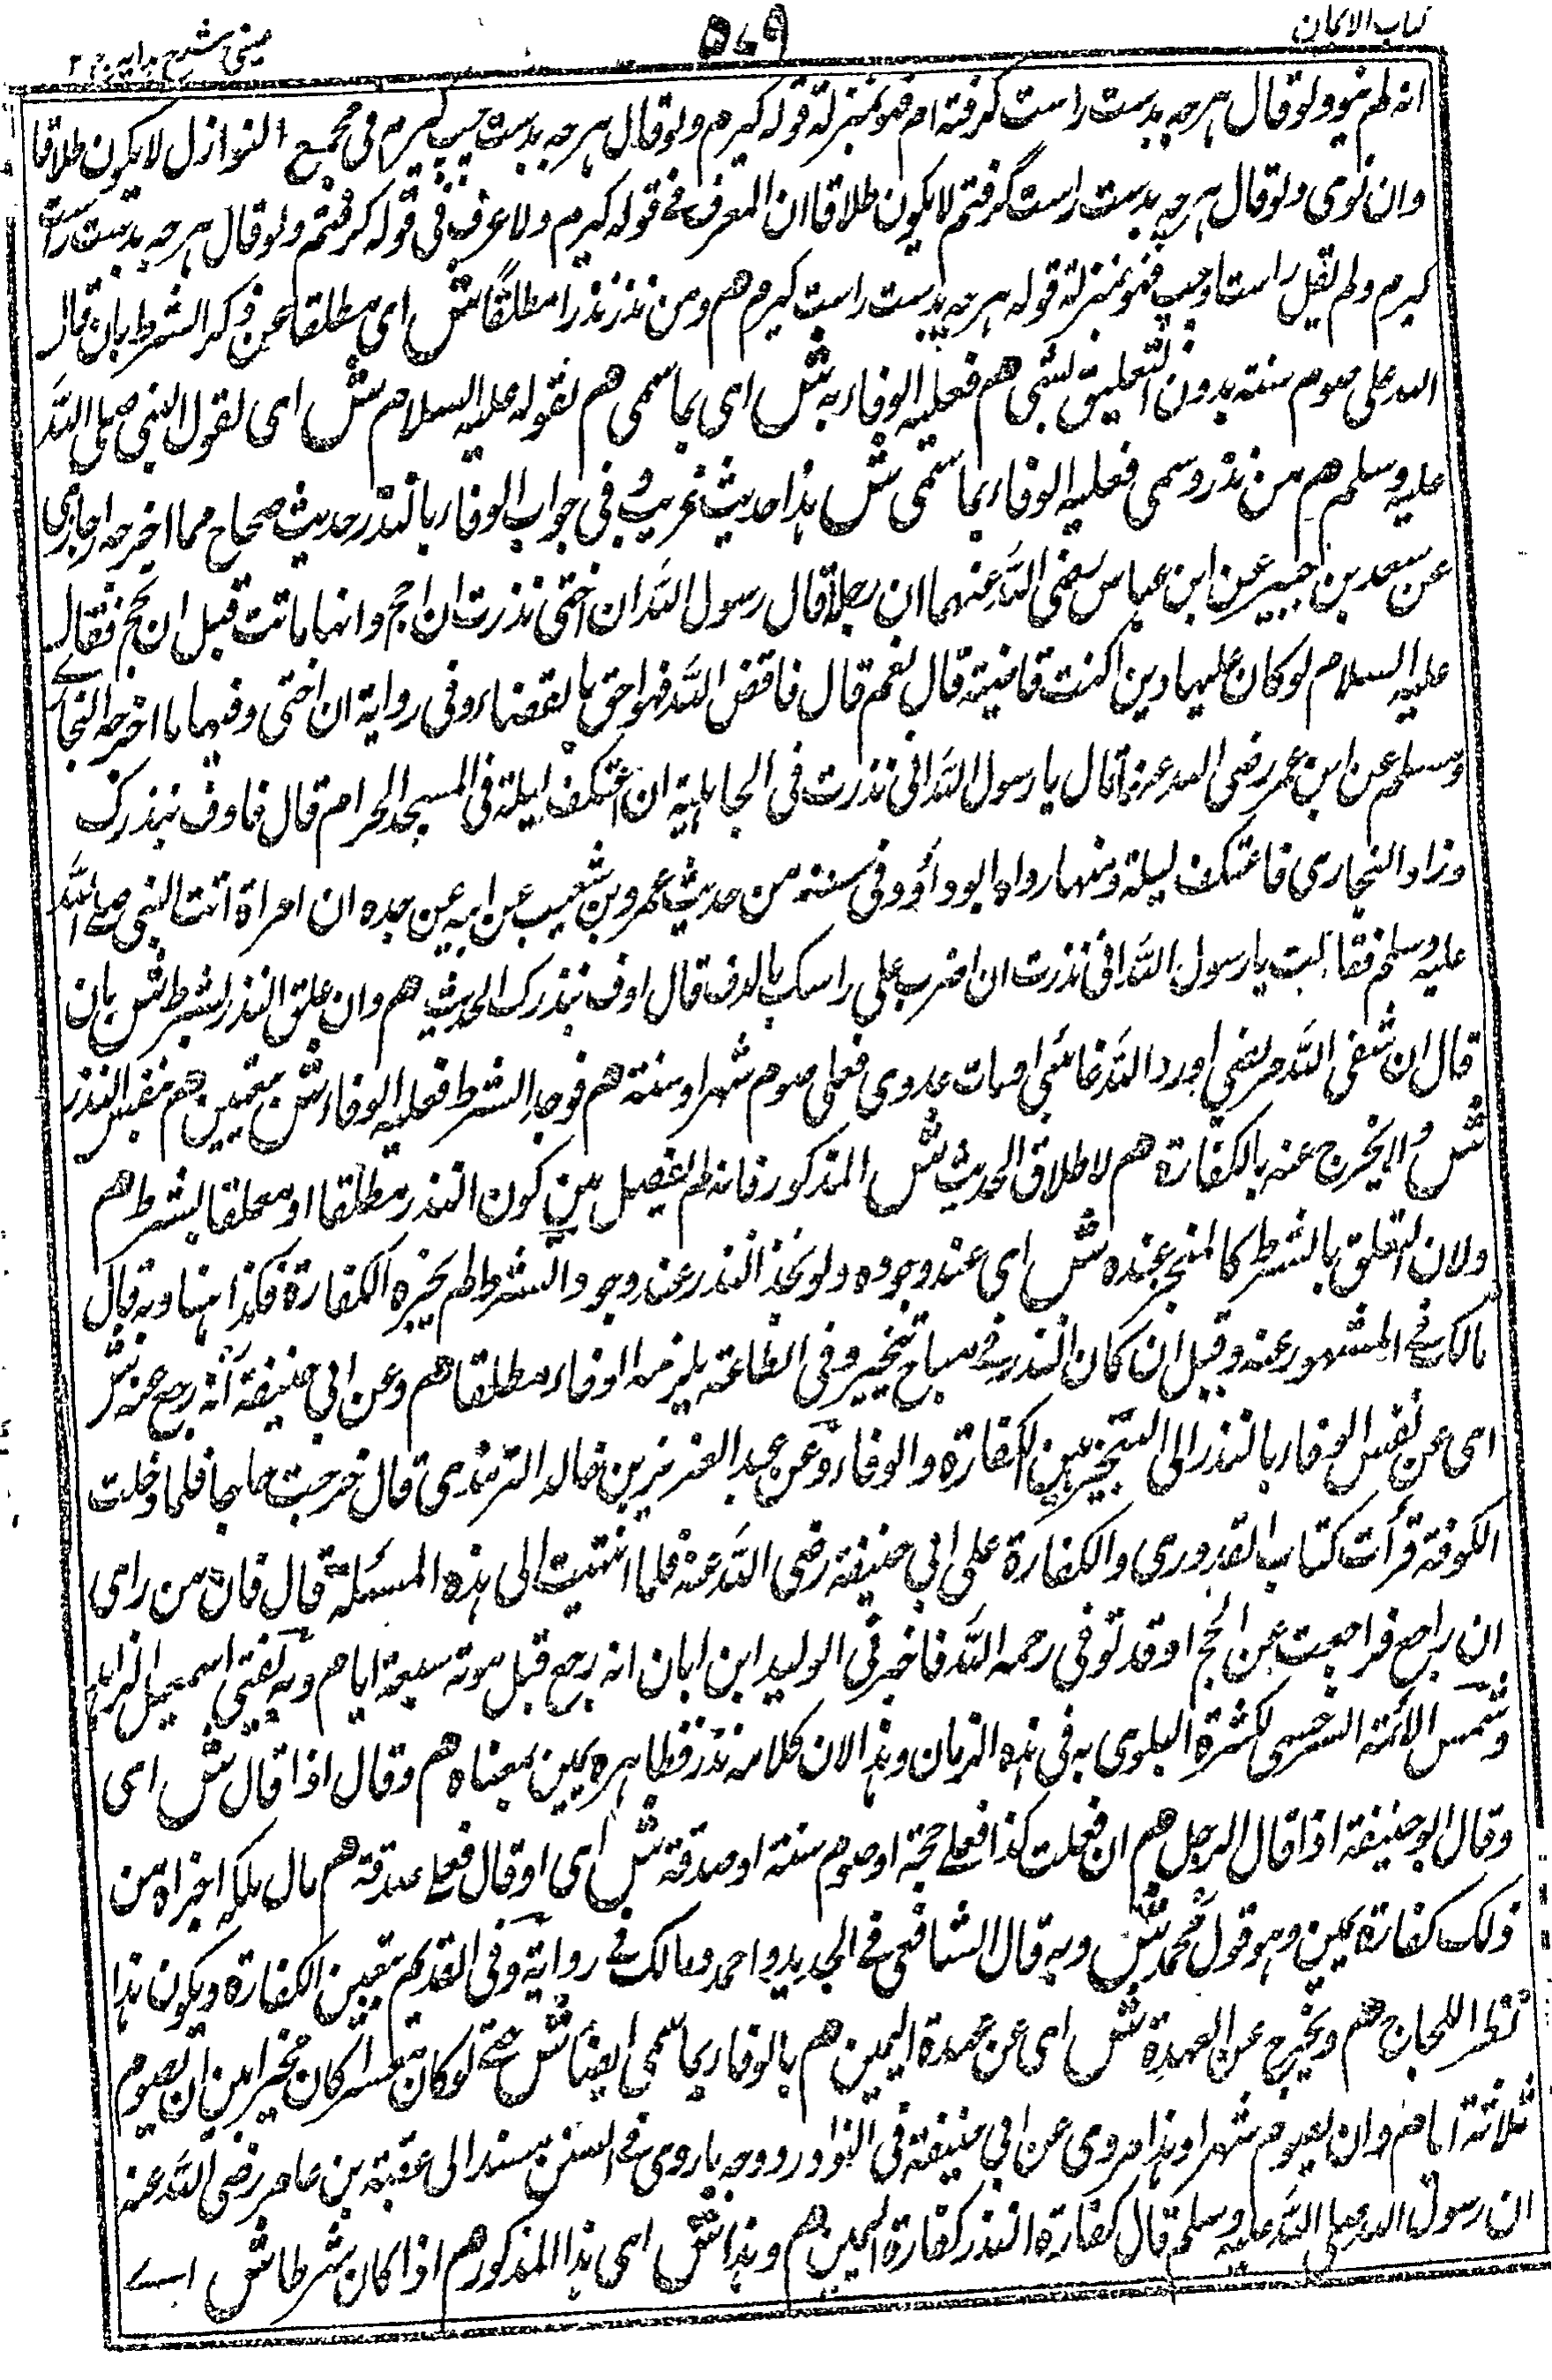 كتاب الايمان
٥٤٩
عینی شرح ہدایہ ج ٢
انه لم ينو ولو قال ہرچہ بدست راست گرفتہ ام فهو بمنزلة قوله گیرم ولو قال ہرچہ بدست چپ گیرم فى مجمع النوازل لا يكون طلاقا
وان نوى ولو قال ہرچہ بدست راست گرفتم لا يكون طلاقا ان العرف فى قوله گیرم ولا عرف فى قوله گرفتم ولو قال ہرچہ بدست راست
گیرم ولم يقل راست او چپ فهو بمنزلة قوله ہرچہ بدست راست گیرم هم ومن نذر نذرا مطلقا ش اى مطلقا عن ذكر الشرط بان قال
لله على صوم سنة بدون التعليق بشئ هم فعليه الوفاء به ش اى بما سمى هم لقوله عليه السلام ش اى لقول النبى صلى الله
عليه وسلم هم من نذر وسمى فعليه الوفاء بما سمى ش هذا حديث غريب وفى جواب الوفاء بالنذر حديث صحاح مما اخرجه البخارى
عن سعيد بن جبير عن ابن عباس رضى الله عنهما ان رجلا قال رسول الله ان اختى نذرت ان احج وانها ماتت قبل ان تحج فقال
عليه السلام لو كان عليها دين اكنت قاضيته قال نعم قال فاقض الله فهو احق بالقضاء وفى رواية ان اختى وفيهما ما اخرجه البخارى
ومسلم عن ابن عمر رضى الله عنه قال يا رسول الله انى نذرت فى الجاهلية ان اعتكف ليلة فى المسجد الحرام قال فاوف بنذرك
وزاد البخارى فاعتكف ليلة ومنها رواه ابو داؤد فى سننه من حديث عمرو بن شعيب عن ابيه عن جده ان امراة اتت النبى صلى الله
عليه وسلم فقالت يا رسول الله انى نذرت ان اضرب على راسك بالدف قال اوف بنذرك الحديث هم وان علق النذر بشرط ش بان
قال ان شفى الله مريضى اورد الله غائبى او مات عدوى فعلى صوم شهر او سنة هم فوجد الشرط فعليه الوفاء ش بتعيين هم بنفس النذر
ش ولا يخرج عنه بالكفارة هم لاطلاق الحديث ش المذكور فانه لم يفصل بين كون النذر مطلقا او معلقا بشرط هم
ولان المتعلق بالشرط كالمنجز عنده ش اى عند وجوده ولو نجز النذر عند وجود الشرط لم يجزه الكفارة فكذا هنا وبه قال
مالك فى المشهور عنه وقيل ان كان النذر فى مباح تخير وفى الطاعة يلزمه الوفاء مطلقا هم وعن ابى حنيفة انه رجع عنه ش
اى عن نفس الوفاء بالنذر الى التخيير بين الكفارة والوفاء وعن عبد العزيز بن خالد الترمذى قال خرجت حاجا فلما دخلت
الكوفة قرأت كتاب القدورى والكفارة على ابى حنيفة رضى الله عنه فلما انتهيت الى هذه المسئلة قال قان من راى
ان راجع فراجعت عن الحج او قد توفى رحمه الله فاخبرنى الوليد ابن ابان انه رجع قبل موته سبعة ايام وبه يفتى اسمعيل الزاهد
وشمس الائمة السرخسى لكثرة البلوى به فى هذه الزمان وهذا لان كلامه نذر فظاهره يمين بمعناه هم وقال اذا قال ش اى
وقال ابو حنيفة اذا قال الرجل هم ان فعلت كذا فعلى حجة او صوم سنة او صدقة ش اى او قال فعلى صدقة هم مال ملكه اجزاه من
ذلك كفارة يمين وهو قول محمد ش وبه قال الشافعى فى الجديد واحمد ومالك فى رواية وفى القديم تعين الكفارة ويكون هذا
نذر اللجاج هم ويخرج عن العهدة ش اى عن عهدة اليمين هم بالوفاء بما سمى ايضا ش حتى لو كان معسرا كان مخيرا بين ان يصوم
ثلاثة ايام وان يصوم شهرا وهذا مروى عن ابى حنيفة فى النوادر ووجه ما روى فى السنن مسندا الى عقبة بن عامر رضى الله عنه
ان رسول الله صلى الله عليه وسلم قال كفارة النذر كفارة اليمين هم وهذا ش اى هذا المذكور هم اذا كان شرطا ش اى